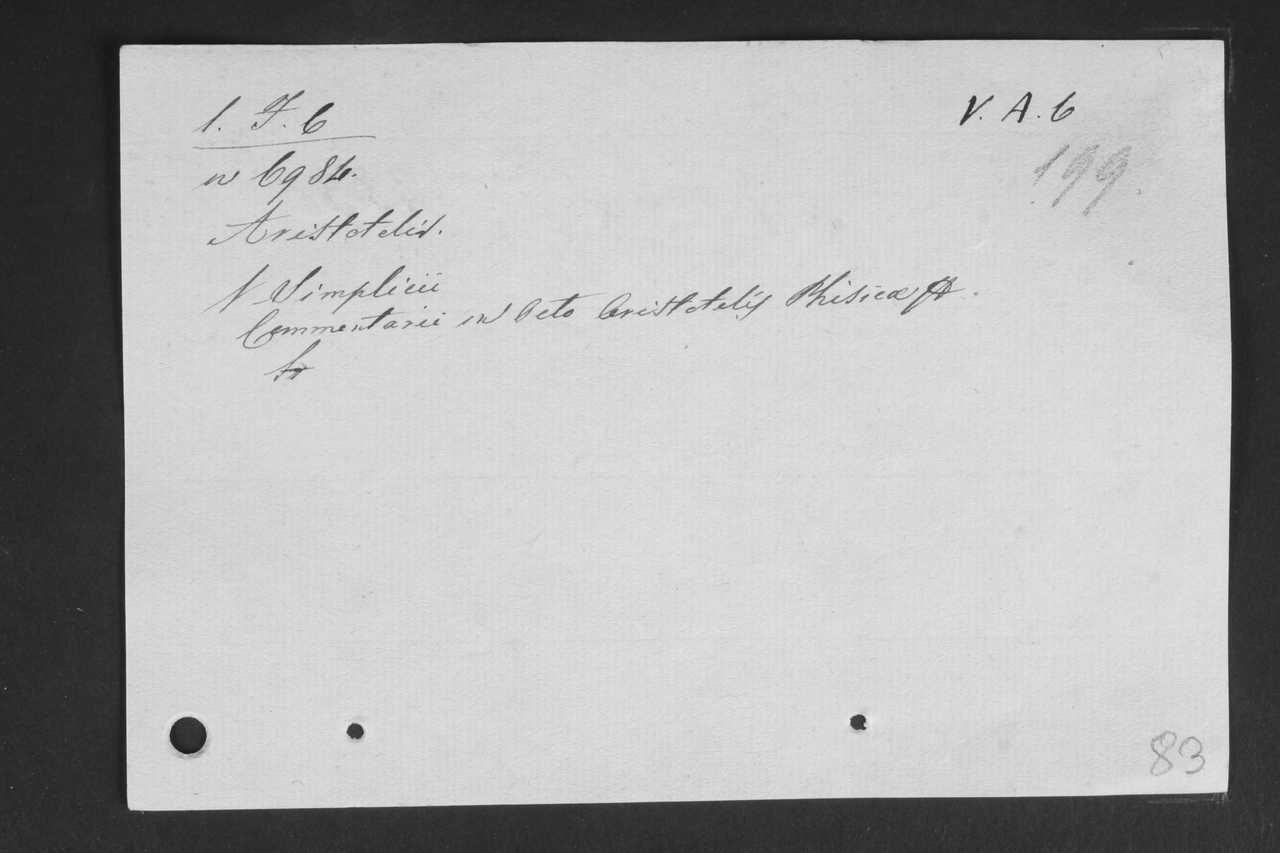 1. F. 6
V. A. 6
n 6984.
199
Aristotelis.
Simplicii
Commentarii in Octo Aristotelis Phisicæ
83